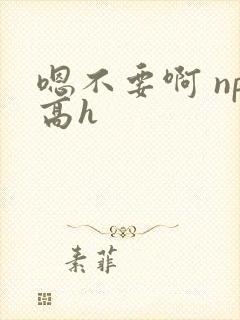 嗯不要啊 np
高h
素菲